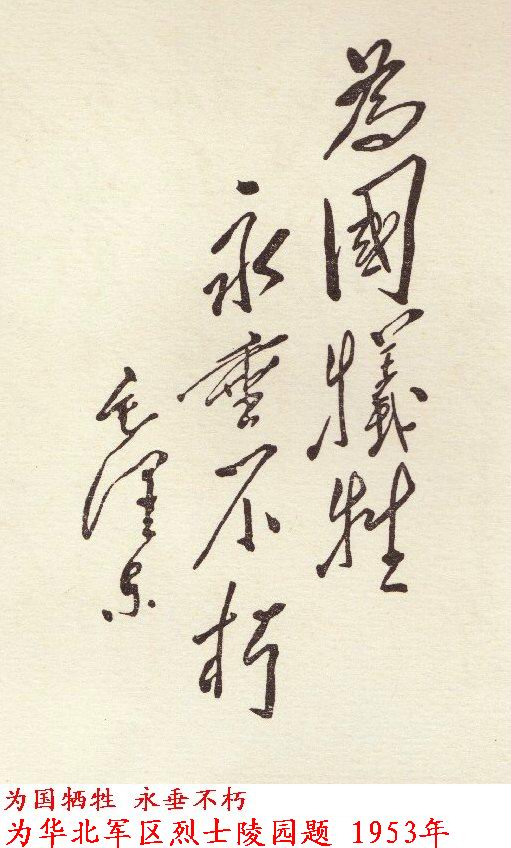 為國犧牲
永垂不朽
毛澤东
为国牺牲 永垂不朽
为华北军区烈士陵园题 1953年